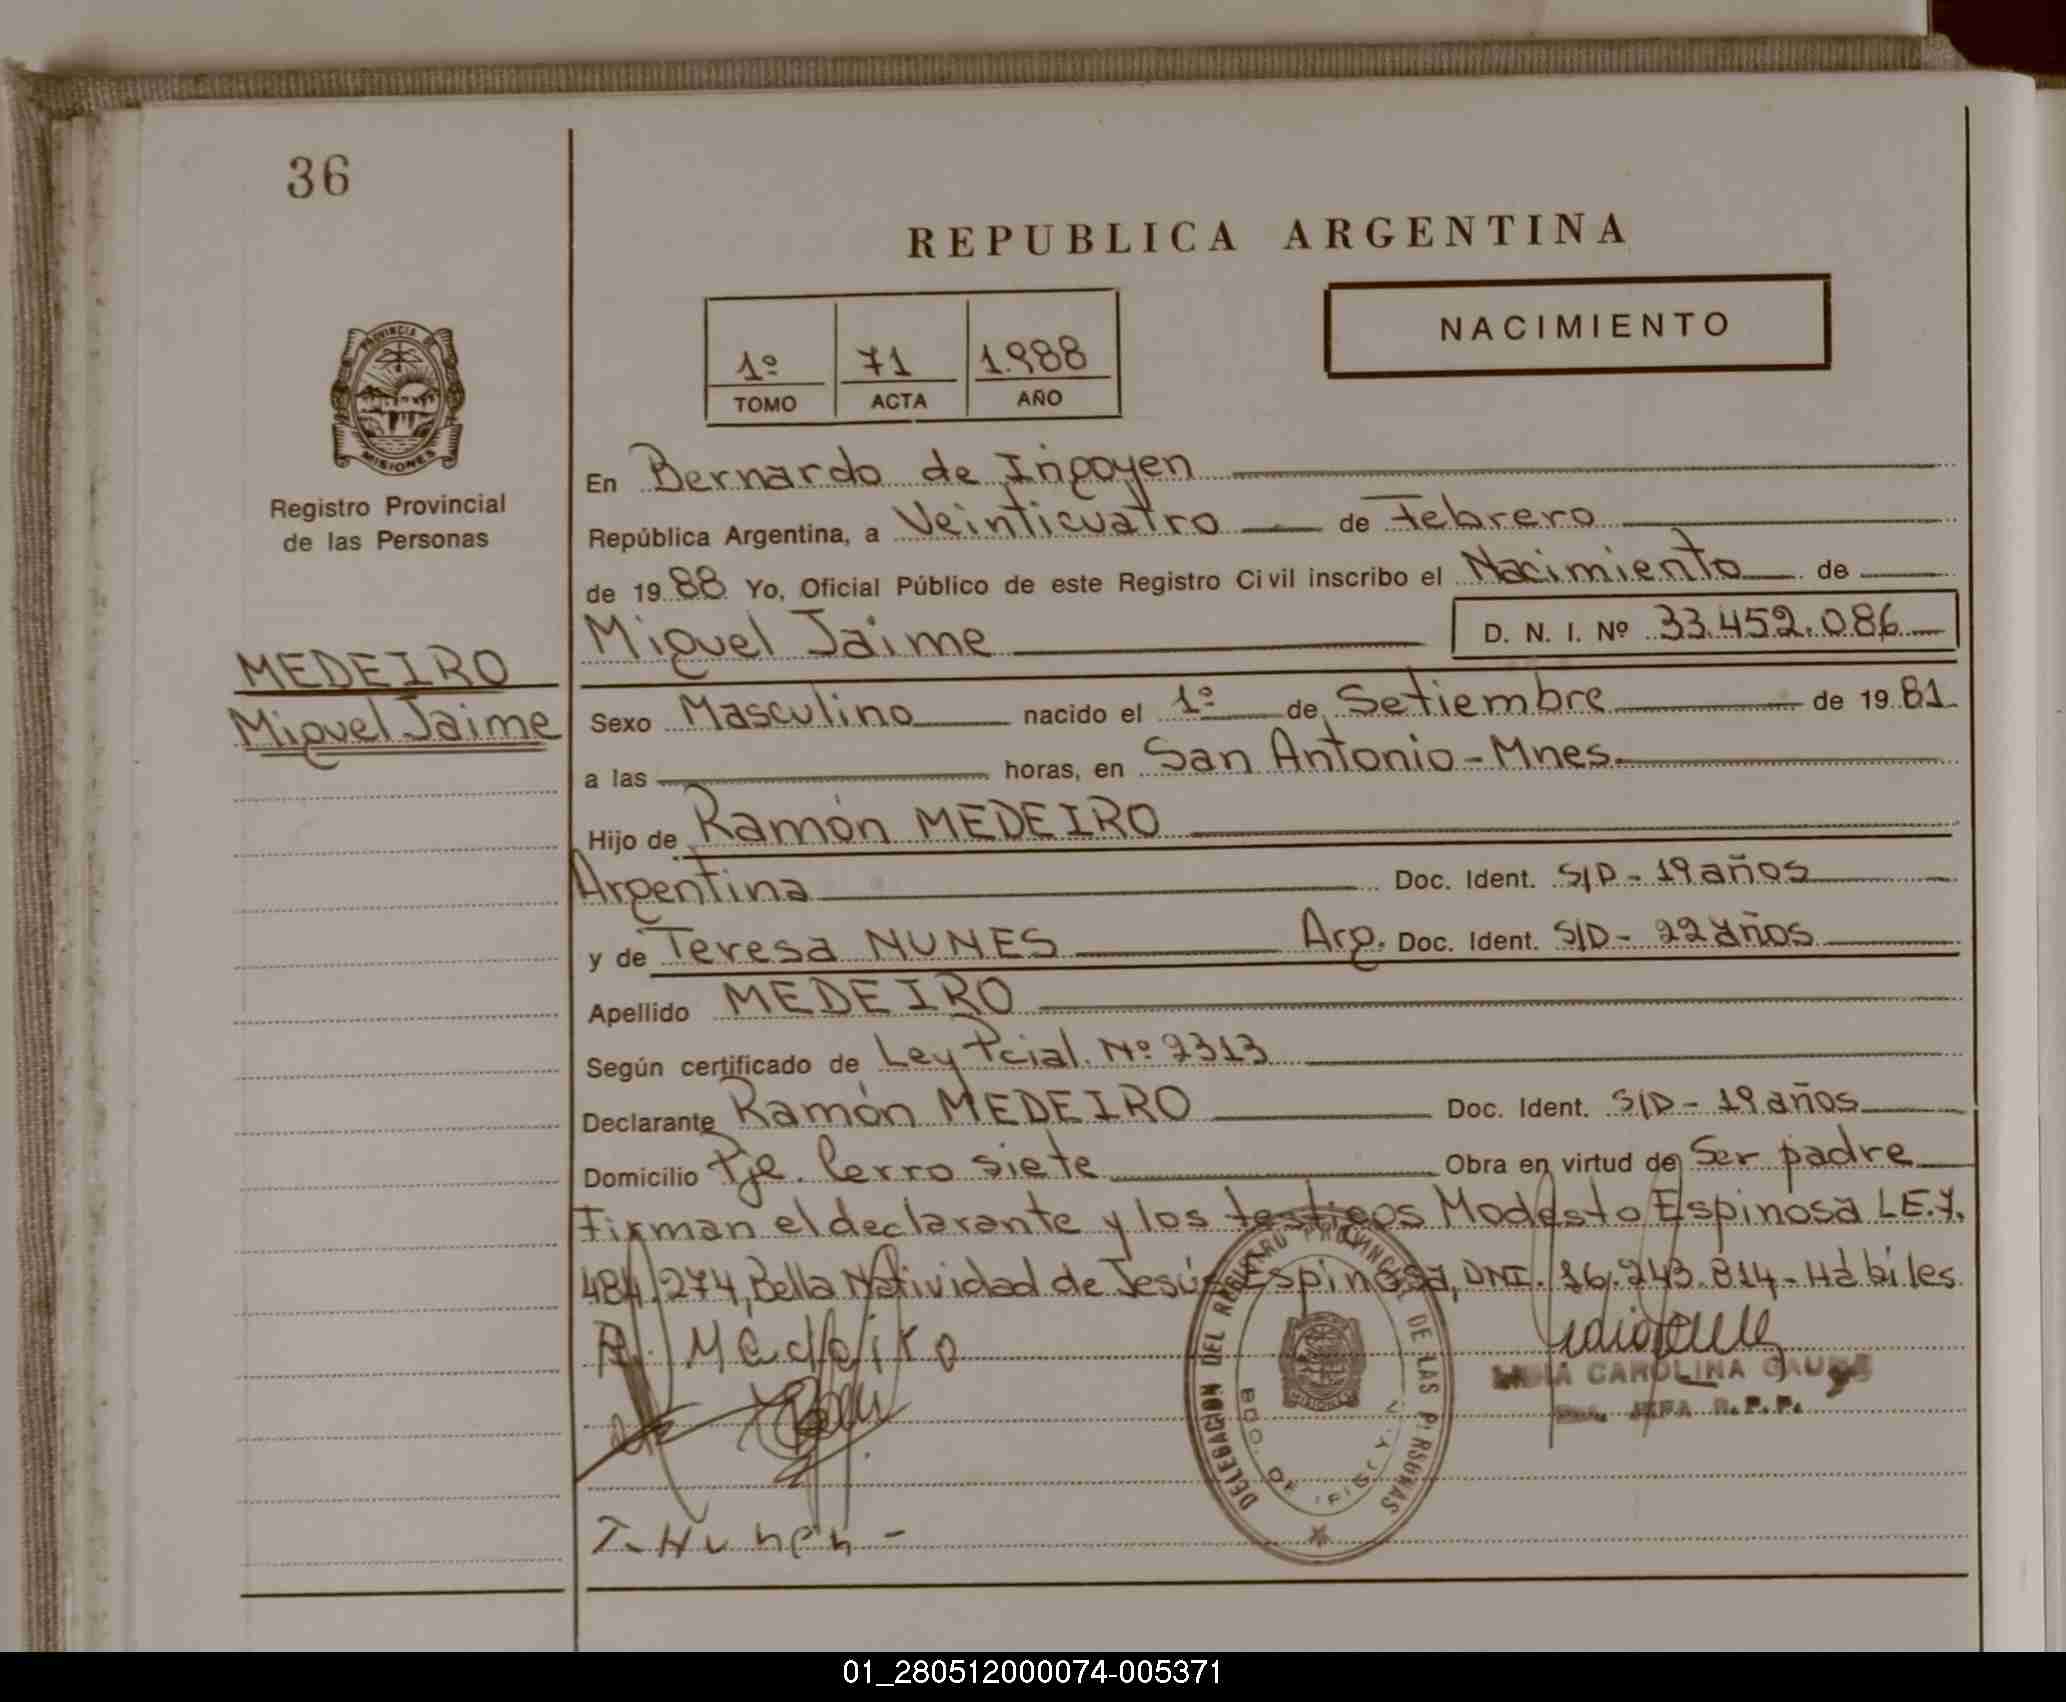 36
REPUBLICA ARGENTINA
NACIMIENTO
1º 71 1.988
TOMO ACTA AÑO
PROVINCIA DE
MISIONES
Registro Provincial
de las Personas
En Bernardo de Irigoyen
República Argentina, a Veinticuatro de Febrero
de 1988 Yo, Oficial Público de este Registro Civil inscribo el Nacimiento de
Miguel Jaime D. N. I. Nº 33.452.086
MEDEIRO
Miguel Jaime
Sexo Masculino nacido el 1º de Setiembre de 1981
a las horas, en San Antonio - Mnes.
Hijo de Ramón MEDEIRO
Argentina Doc. Ident. S/D - 19 años
y de Teresa NUNES Arg. Doc. Ident. S/D - 22 años
Apellido MEDEIRO
Según certificado de Ley Pcial. Nº 2313
Declarante Ramón MEDEIRO Doc. Ident. S/D - 19 años
Domicilio Pje. Cerro siete Obra en virtud de Ser padre
Firman el declarante y los testigos Modesto Espinosa L.E. 7.
484.274, Bella Natividad de Jesús Espinosa, DNI. 16.243.814 - Hábiles
R. Medeiro
CAROLINA
JEFA R.P.P.
DELEGACION DEL REGISTRO PROVINCIAL DE LAS PERSONAS
BDO. DE IRIGOYEN
T. Nunen -
01_280512000074-005371